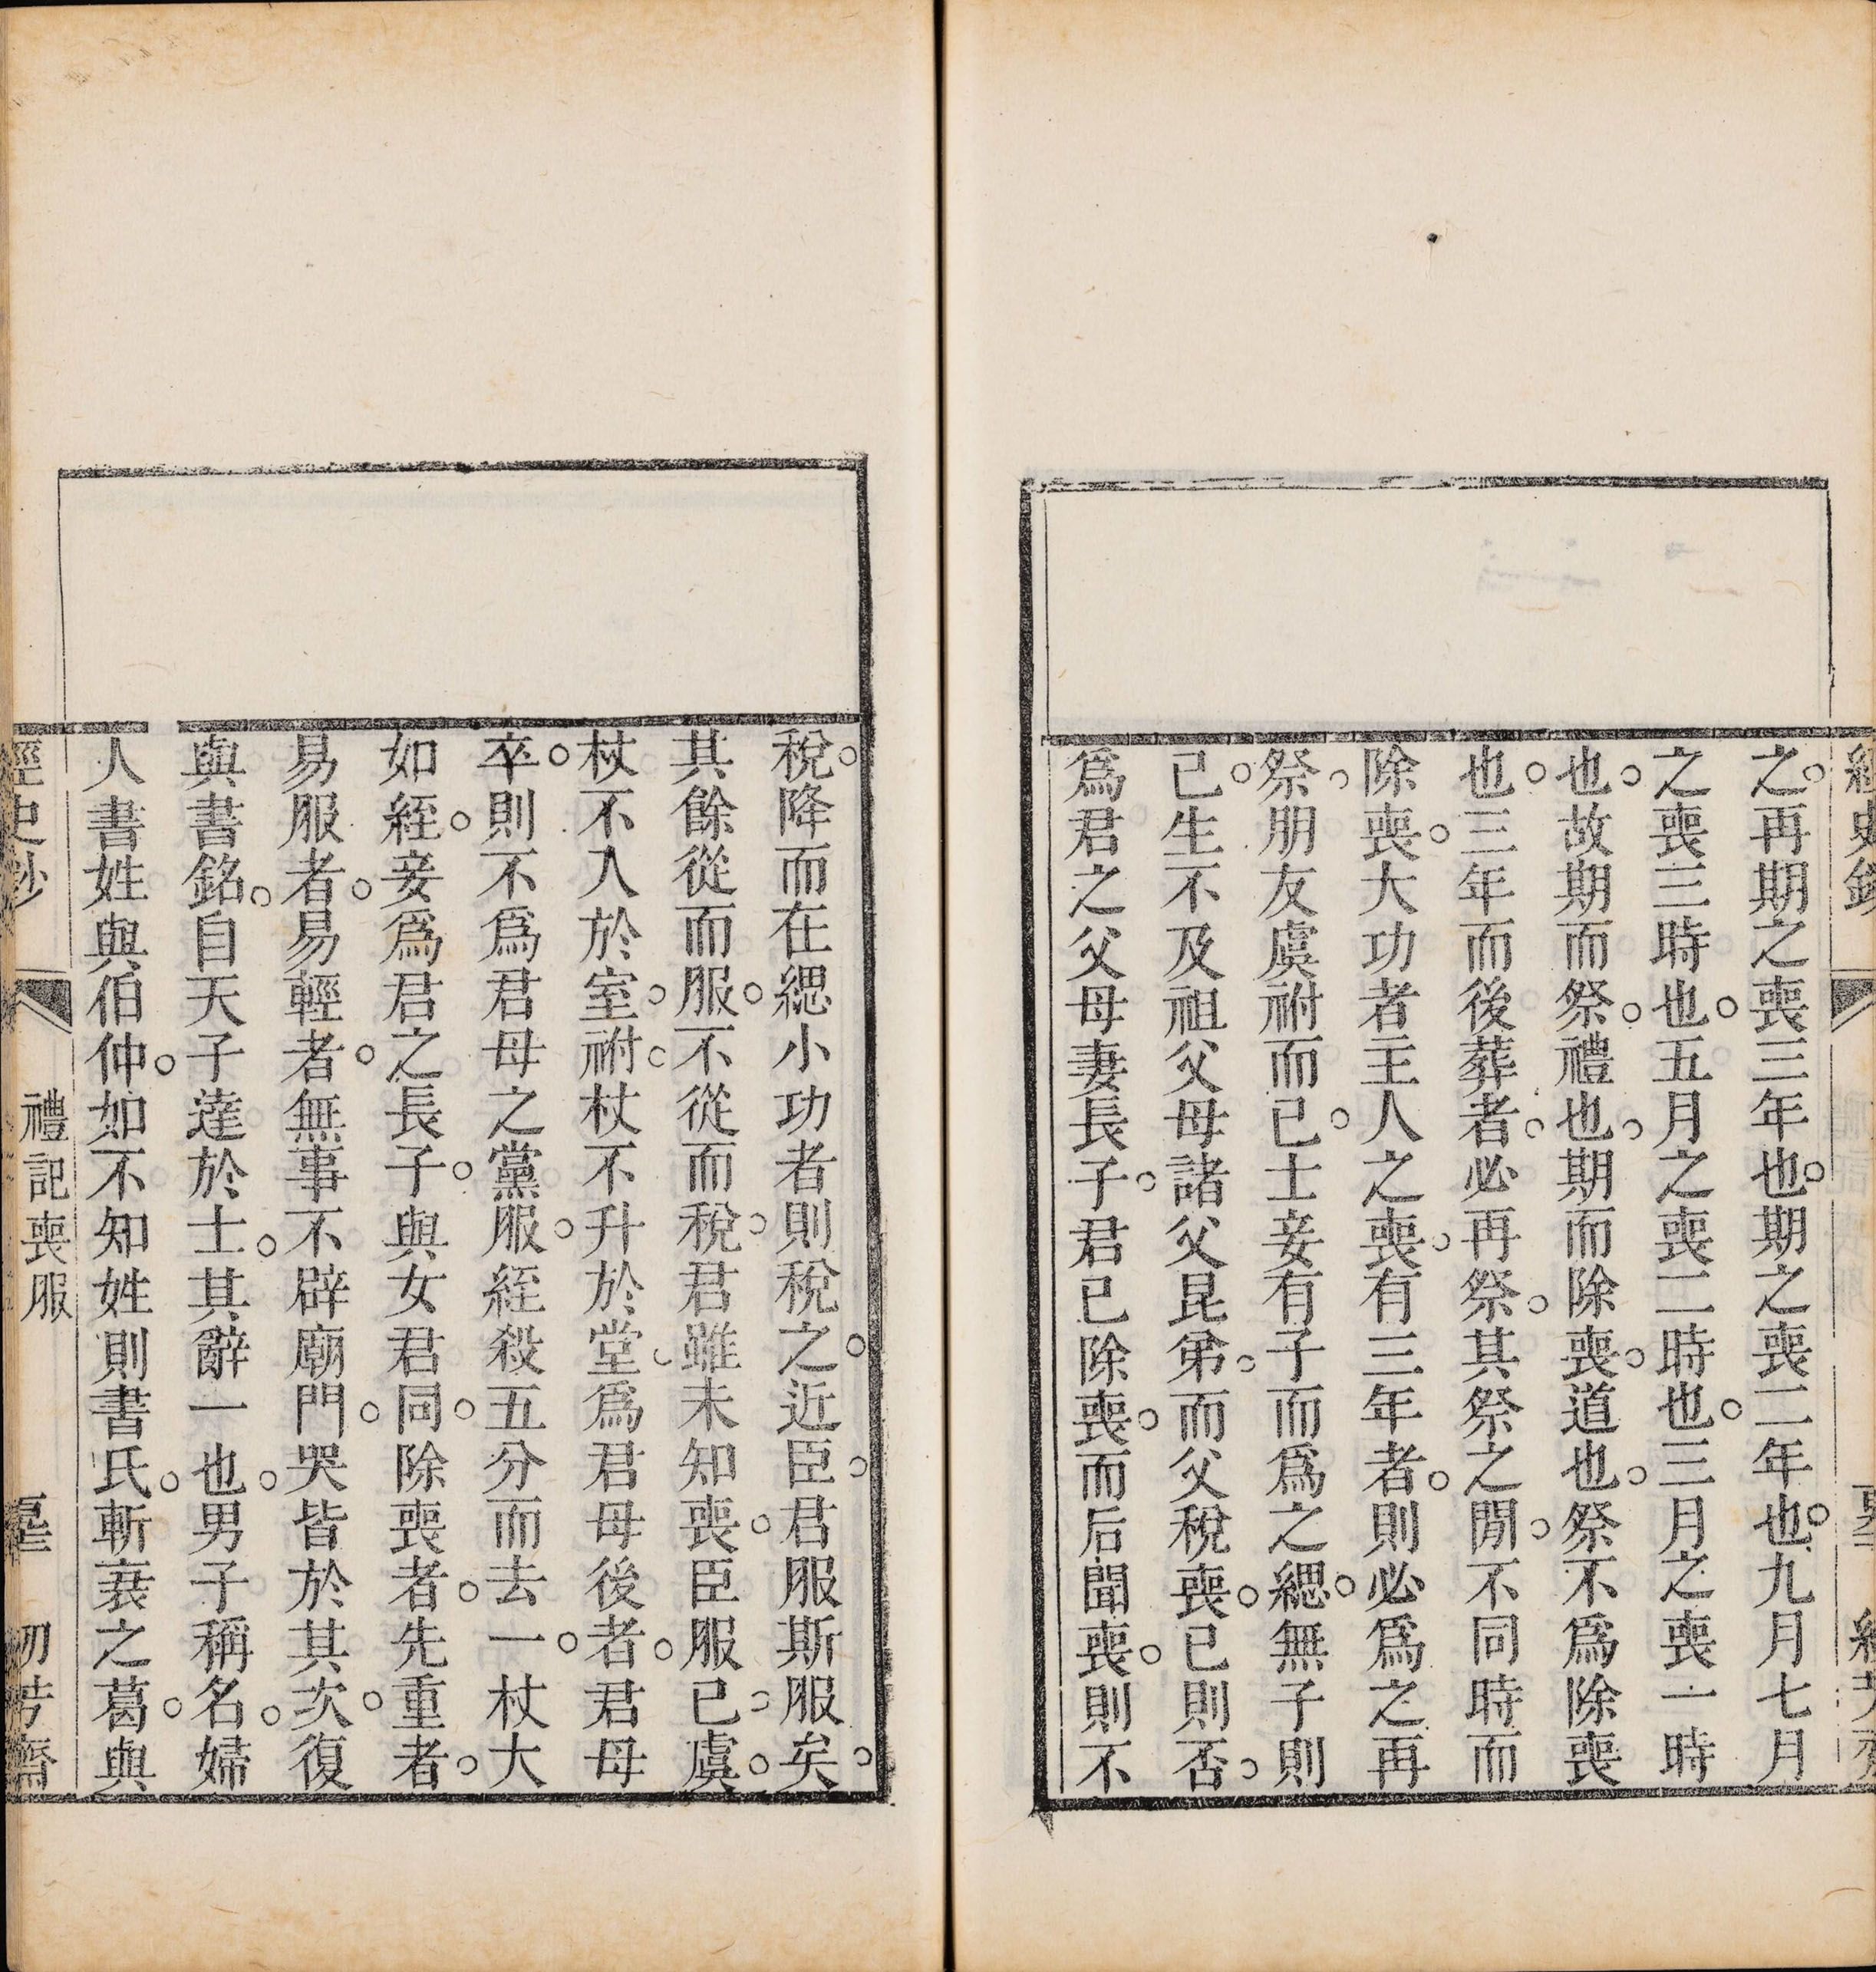 之。再期之喪三年也。期之喪二年也。九月七月
之喪三時也。五月之喪二時也。三月之喪一時
也。故期而祭。禮也。期而除喪。道也。祭不為除喪
也。三年而後葬者。必再祭。其祭之閒。不同時而
除喪。大功者主人之喪。有三年者。則必為之再
祭。朋友虞祔而已。士妾有子而為之緦。無子則
已。生不及祖父母諸父昆弟。而父稅喪。已則否。
爲君之父母妻長子。君已除喪。而后聞喪。則不
稅。降而在緦小功者則稅之。近臣。君服斯服矣。
其餘從而服。不從而稅。君雖未知喪。臣服已。虞。
杖不入於室。祔。杖不升於堂。爲君母後者。君母
卒。則不爲君母之黨服。絰殺五分而去一。杖大
如絰。妾爲君之長子。與女君同。除喪者。先重者。
易服者。易輕者。無事不辟廟門。哭皆於其次。復
與書銘。自天子達於士。其辭一也。男子稱名。婦
人書姓與伯仲。如不知姓則書氏。斬衰之葛。與
禮記喪服